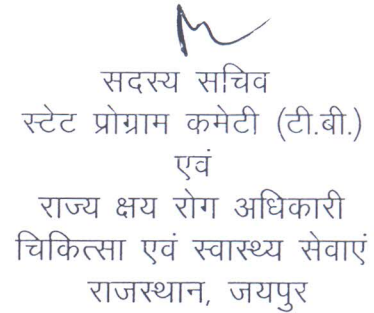 सदस्य सचिव
स्टेट प्रोग्राम कमेटी (टी.बी.)
एवं
राज्य क्षय रोग अधिकारी
चिकित्सा एवं स्वास्थ्य सेवाएं
राजस्थान, जयपुर